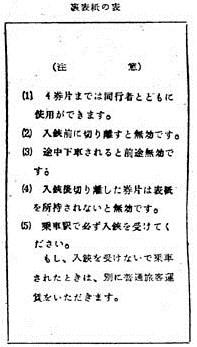 裏表紙の表
(注 意)
(1) 4券片までは同行者とともに
使用ができます。
(2) 入鋏前に切り離すと無効です。
(3) 途中下車されると前途無効で
す。
(4) 入鋏後切り離した券片は表紙
を所持されないと無効です。
(5) 乗車駅で必ず入鋏を受けてく
ださい。
もし、入鋏を受けないで乗車
されたときは、別に普通旅客運
賃をいただきます。